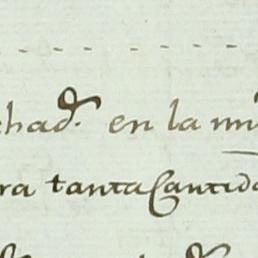 chad.^s en la m
ra tanta Cantid